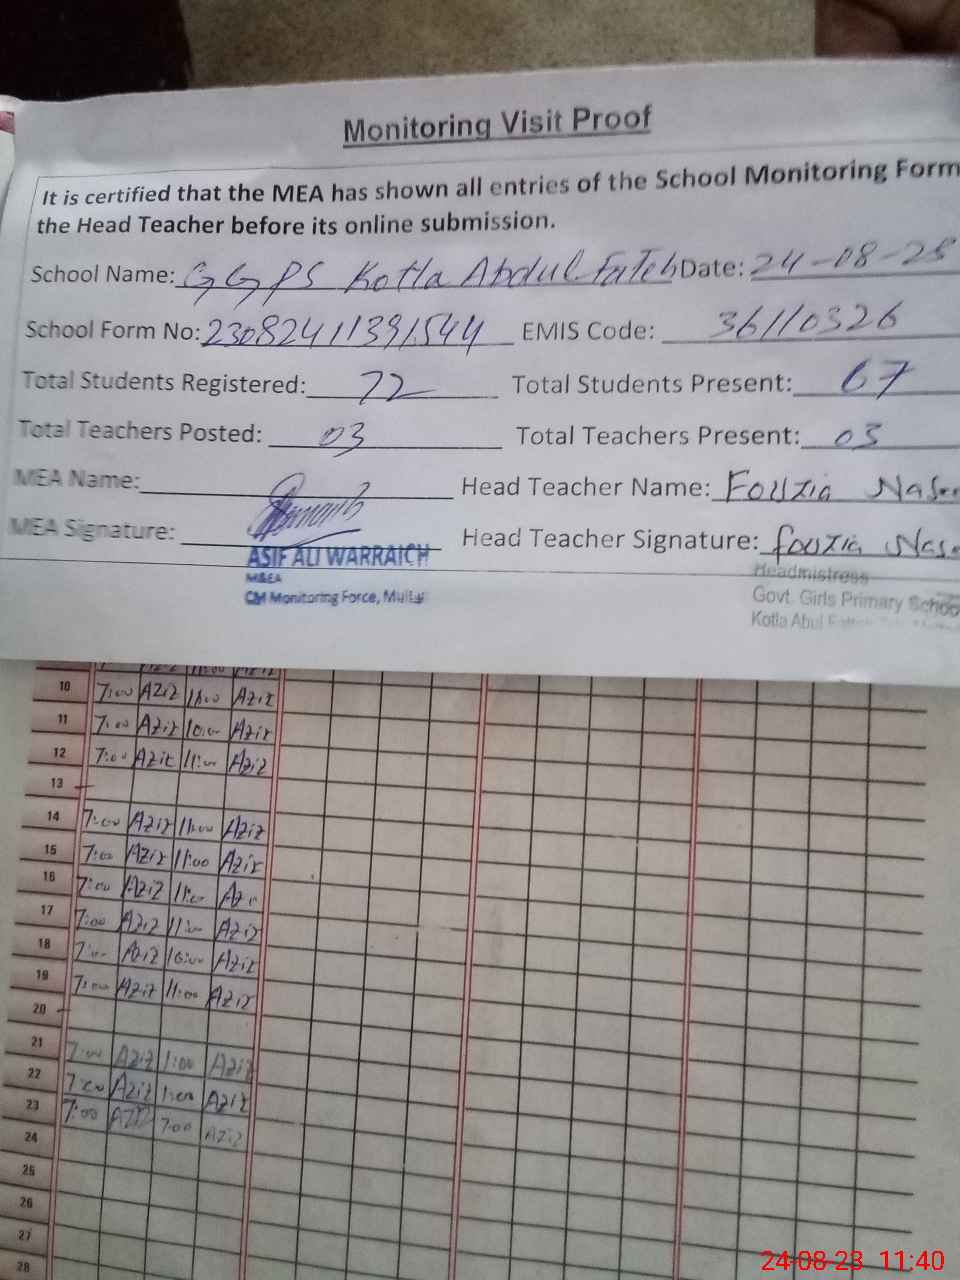 Monitoring Visit Proof
It is certified that the MEA has shown all entries of the School Monitoring Form
the Head Teacher before its online submission.
School Name: GGPS Kotla Abdul Fateh Date: 24-08-23
School Form No: 23082411391544 EMIS Code: 36110326
Total Students Registered: 72 Total Students Present: 67
Total Teachers Posted: 03 Total Teachers Present: 03
MEA Name: Head Teacher Name: Fouzia
MEA Signature: Head Teacher Signature: fouzia
ASIF ALI WARRAICH
M&EA
CM Monitoring Force,
Headmistress
Govt. Girls Primary School
Kotla Abul
10 7:00 Aziz 11:00 Aziz
11 7:00 Aziz 10:00 Aziz
12 7:00 Aziz 11:00 Aziz
13
14 7:00 Aziz 11:00 Aziz
15 7:00 Aziz 11:00 Aziz
16 7:00 Aziz 11:00
17 7:00 Aziz 11:00 Aziz
18 7:00 Aziz 10:00 Aziz
19 7:00 Aziz 11:00 Aziz
20
21 7:00 Aziz 1:00 Aziz
22 7:00 Aziz 1:00 Aziz
23 7:00 Aziz 7:00 Aziz
24
25
26
27
28
24-08-23 11:40